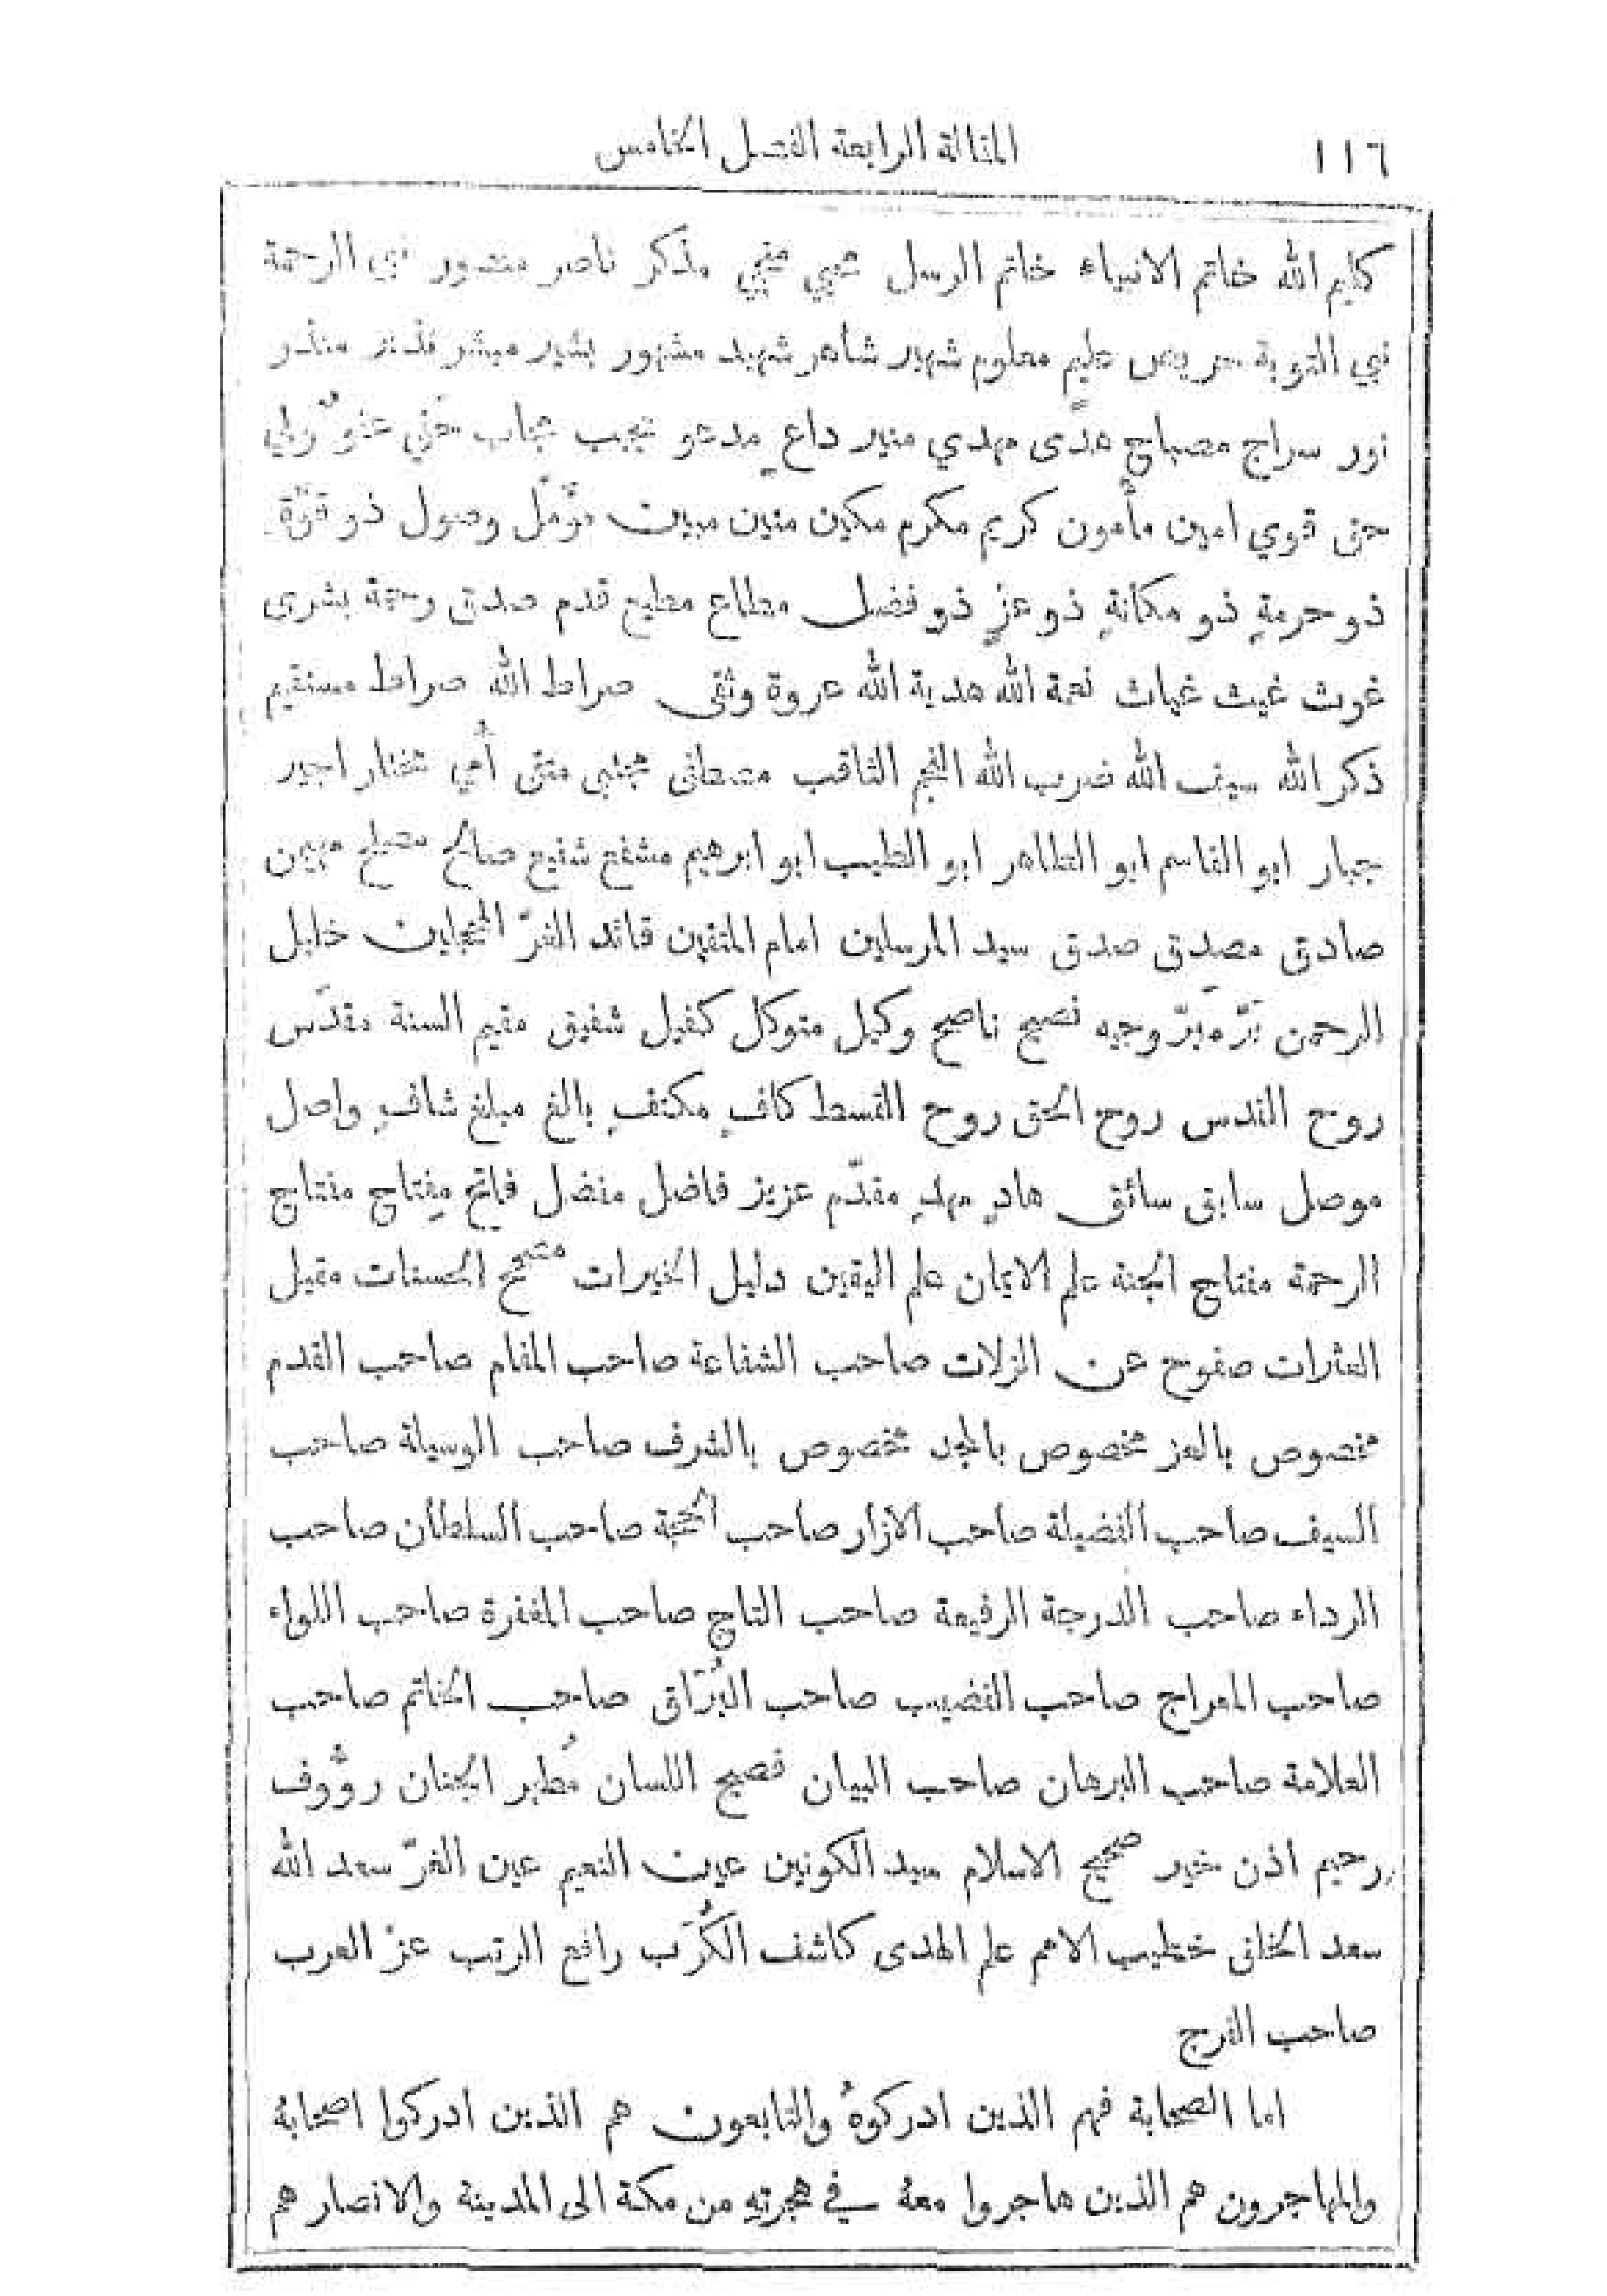 ١١٦ المقالة الرابعة الفصل الخامس
كليم الله خاتم الانبياء خاتم الرسل محيي منجي مذكر ناصر منصور نبي الرحمة
نبي التوبة حريص عليم معلوم شهير شاهر شهيد مشهور بشير مبشر نذير منذر
نور سراج مصباح هدًى مهدي منير داعٍ مدعو مجيب مجاب حفي عفوٌّ ولي
حق قوي امين مأمون كريم مكرم مكين متين مبين مؤمّل وصول ذو قوّة
ذو حرمةٍ ذو مكانةٍ ذو عزٍ ذو فضل مطاع مطيع قدم صدق رحمة بشرى
غوث غيث غياث نعمة الله هدية الله عروة وثقى صراط الله صراط مستقيم
ذكر الله سيف الله ضرب الله النجم الثاقب مصطفى مجتبى منتقى أُمي مختار اجير
جبار ابو القاسم ابو الطاهر ابو الطيب ابو ابرهيم مشفع شفيع صالح مصلح مهيمن
صادق مصدق صدق سيد المرسلين امام المتقين قائد الغرّ المحجلين خليل
الرحمن بَرّ مَبَرّ وجيه نصيح ناصح وكيل متوكل كفيل شفيق مقيم السنة مقدَّس
روح القدس روح الحق روح القسط كافٍ مكتفٍ بالغ مبلغ شافٍ واصل
موصل سابق سائق هادٍ مهدٍ مقدّم عزيز فاضل مفضل فاتح مِفتاح مفتاح
الرحمة مفتاح الجنة علم الايمان علم اليقين دليل الخيرات مصحح الحسنات مقيل
العثرات صفوح عن الزلات صاحب الشفاعة صاحب المقام صاحب القدم
مخصوص بالعز مخصوص بالمجد مخصوص بالشرف صاحب الوسيلة صاحب
السيف صاحب الفضيلة صاحب الازار صاحب الحجة صاحب السلطان صاحب
الرداء صاحب الدرجة الرفيعة صاحب التاج صاحب المغفرة صاحب اللواء
صاحب المعراج صاحب القضيب صاحب البُرَاق صاحب الخاتم صاحب
العلامة صاحب البرهان صاحب البيان فصيح اللسان مُطهر الجنان رؤُوف
رحيم اذن خير صحيح الاسلام سيد الكونين عين النعيم عين الغرّ سعد الله
سعد الخلق خطيب الامم علم الهدى كاشف الكُرَب رافع الرتب عز العرب
صاحب الفرج
اما الصحابة فهم الذين ادركوهُ والتابعون هم الذين ادركوا اصحابهُ
والمهاجرون هم الذين هاجروا معهُ في هجرتهِ من مكة الى المدينة والانصار هم